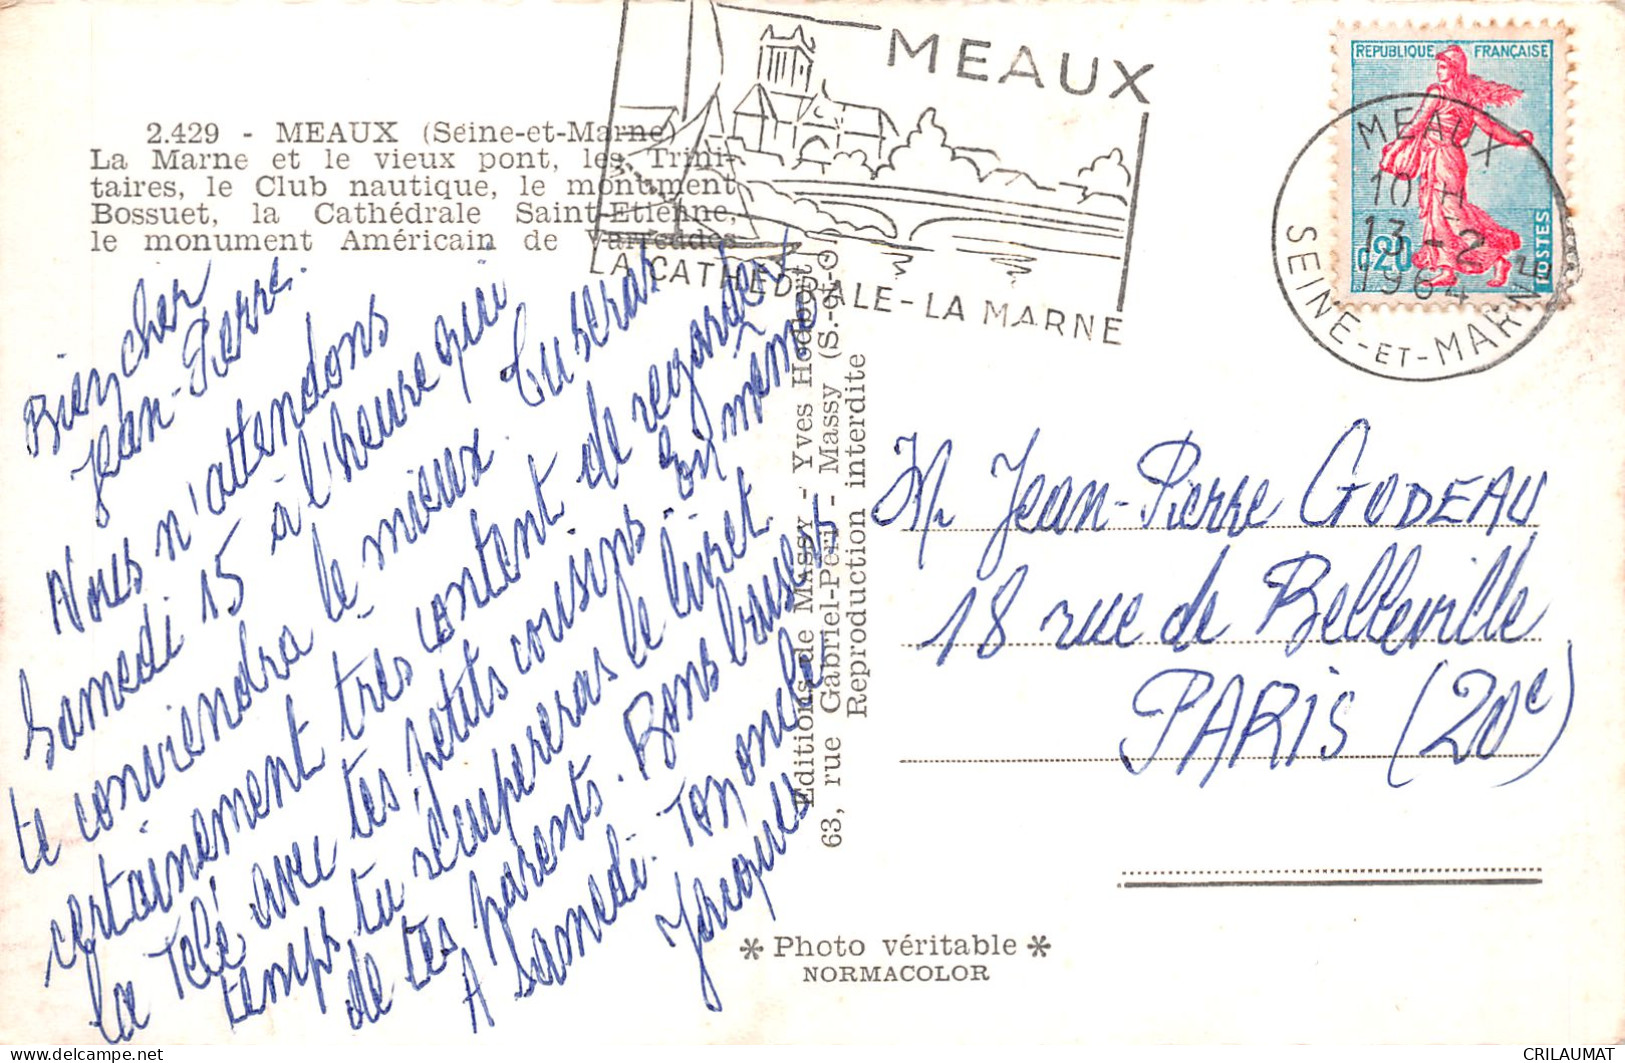 2.429 - MEAUX (Seine-et-Marne)
La Marne et le vieux pont, les Trini-
taires, le Club nautique, le monument
Bossuet, la Cathédrale Saint-Etienne,
le monument Américain de Varreddes
MEAUX
LA CATHEDRALE - LA MARNE
REPUBLIQUE FRANÇAISE
0,20
POSTES
MEAUX
10 H
13 - 2
1964
SEINE-ET-MARNE
Bien cher
Jean-Pierre.
Nous n'attendons
Samedi 15 à l'heure qui
te conviendra le mieux. Tu seras
certainement très content de regarder
la Télé avec tes petits cousins. En même
temps tu récupereras le livret
de tes parents. Bons baisers
A Samedi. Ton oncle
Jacques
Editions de MASSY - Yves Hodbout
63, rue Gabriel-Péri - Massy (S.-et-O.)
Reproduction interdite
M Jean-Pierre GODEAU
18 rue de Belleville
PARIS (20e)
* Photo véritable *
NORMACOLOR
CRILAUMAT